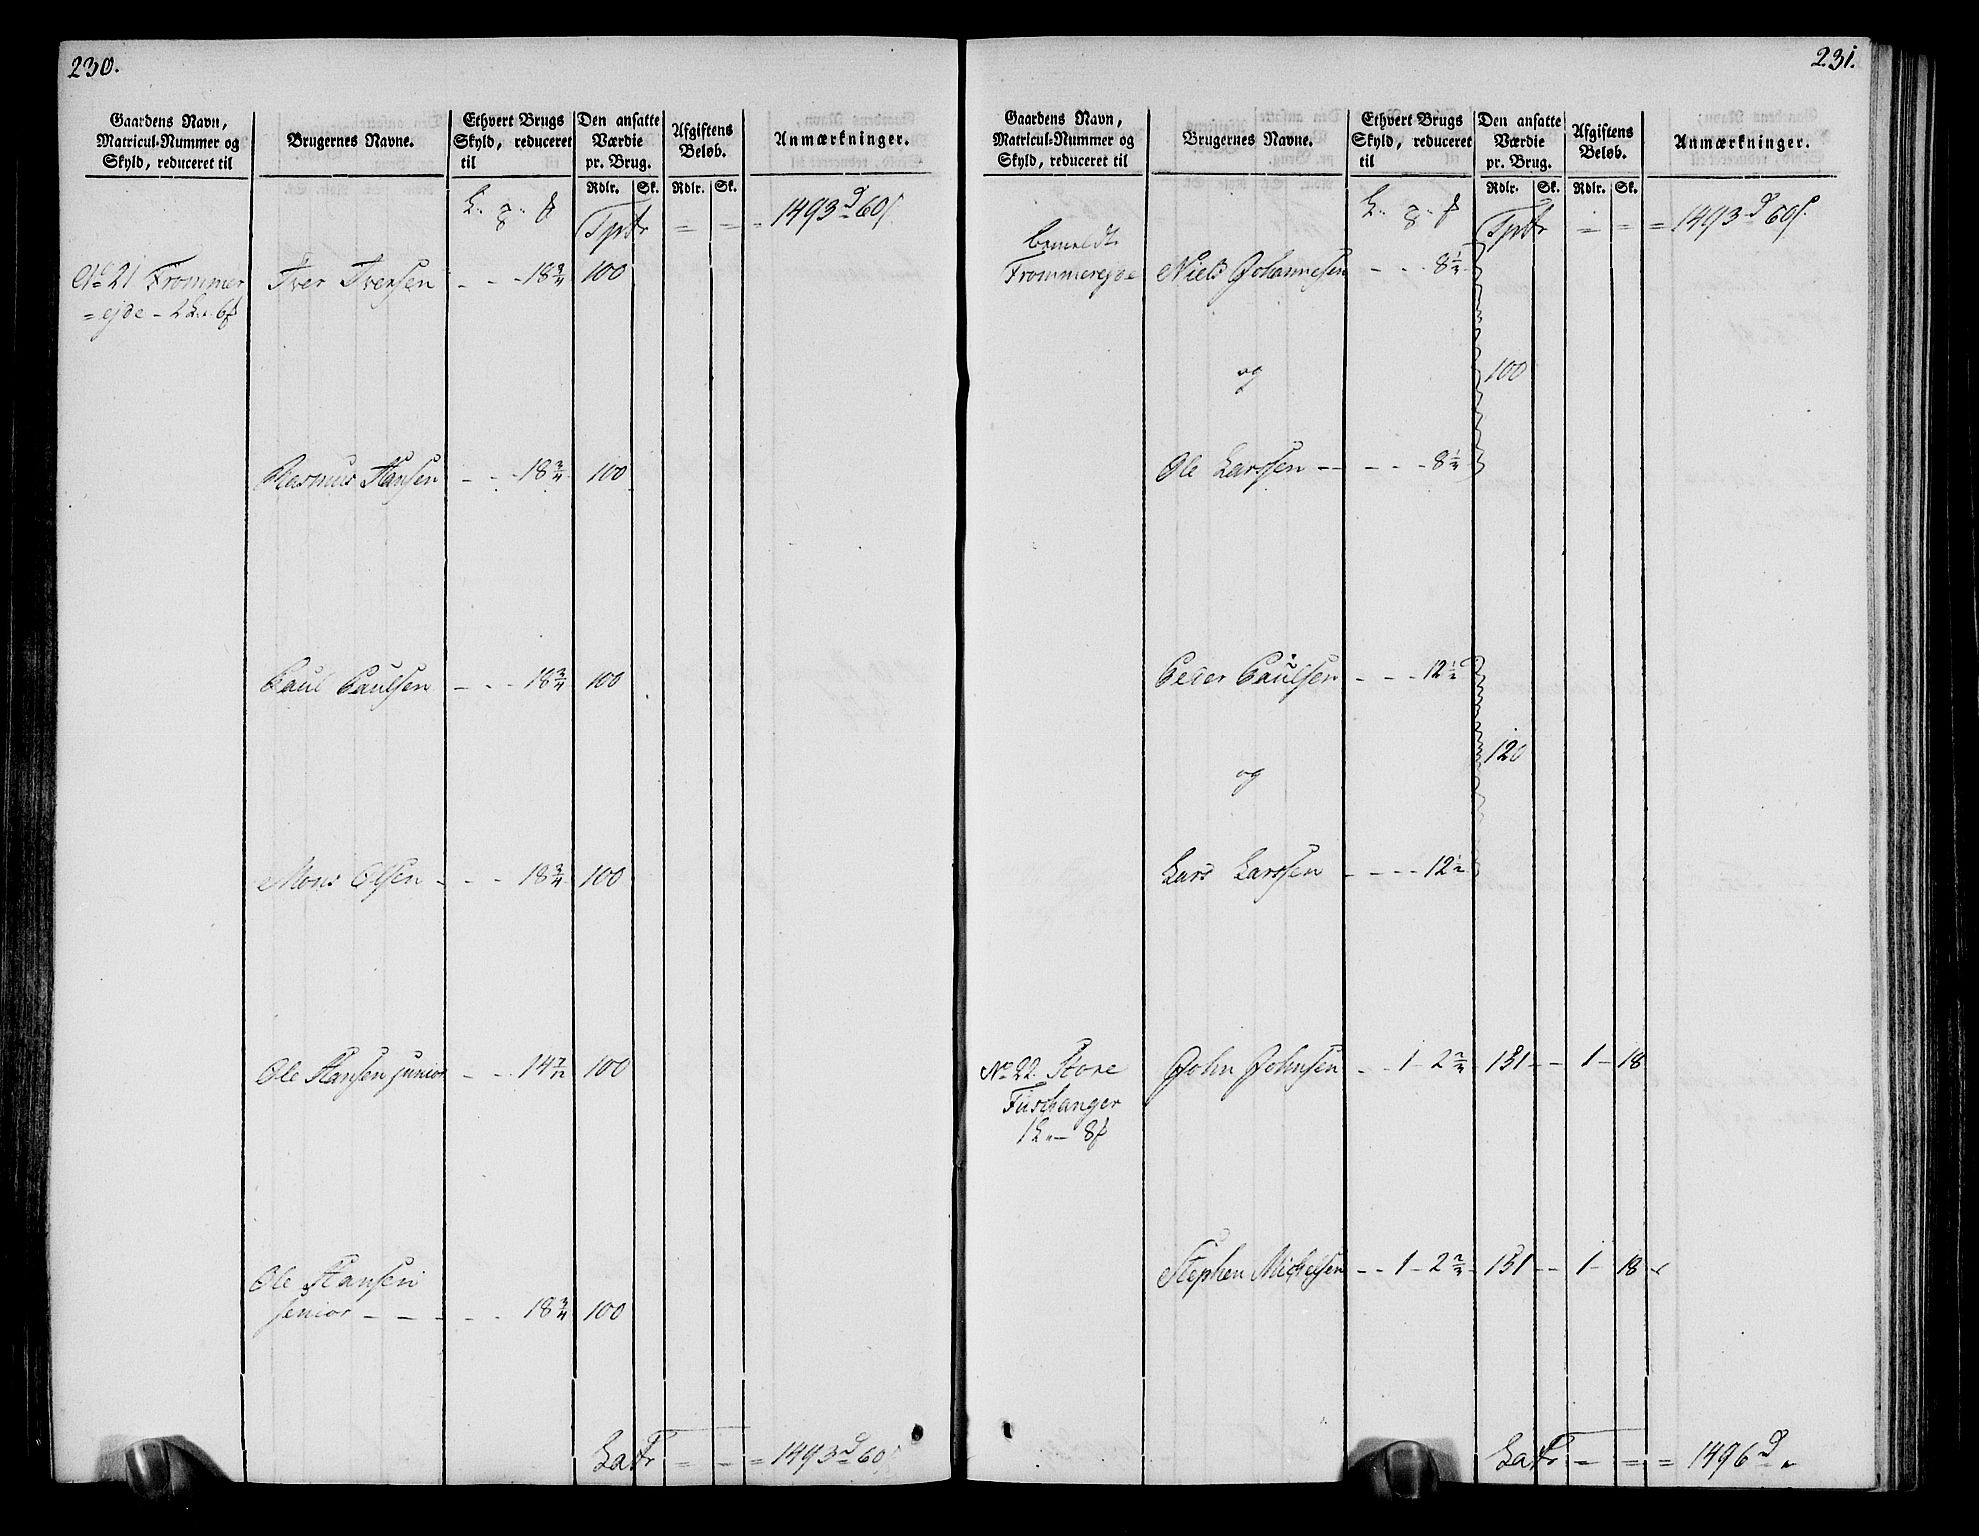 230.
Gaardens Navn, Matricul-Nummer og Skyld, reduceret til
Brugernes Navne.
Ethvert Brugs Skyld, reduceret til
Den ansatte Værdie pr. Brug.
Afgiftens Beløb.
Anmærkninger.
Rdlr. Sk. Rdlr. Sk.
Tpr = = = 1493 d 60 s
No 21 Frommer Iver Iversen - - 18 3/4 100
= ejde - 2 L. 6
Rasmus Hansen - - 18 3/4 100
Paul Paulsen - - 18 3/4 100
Mons Olsen - - - 18 3/4 100
Ole Hansen junior - - 14 7/12 100
Ole Hansen
senior - - - - - 18 3/4 100
Latr = = = 1493 d 60
231.
Gaardens Navn, Matricul-Nummer og Skyld, reduceret til
Brugernes Navne.
Ethvert Brugs Skyld, reduceret til
Den ansatte Værdie pr. Brug.
Afgiftens Beløb.
Anmærkninger.
Rdlr. Sk. Rdlr. Sk.
Tpr = = = 1493 d 60 s.
bemeldte
Frommerejde Niels Johannesen - - - 8 1/3
og 100
Ole Larssen - - - - - 8 1/3
Peder Paulsen - - - 12 1/2
120
og
Lars Larssen - - - - 12 1/2
No 22 Store John Johnsen - - 1 - 2 2/3 131 - - 1 - 18
Fuschanger
1 L. - 8
Stephen Michelsen - - 1 - 2 2/3 - 131 - - 1 - 18
Latr = = = 1496 d